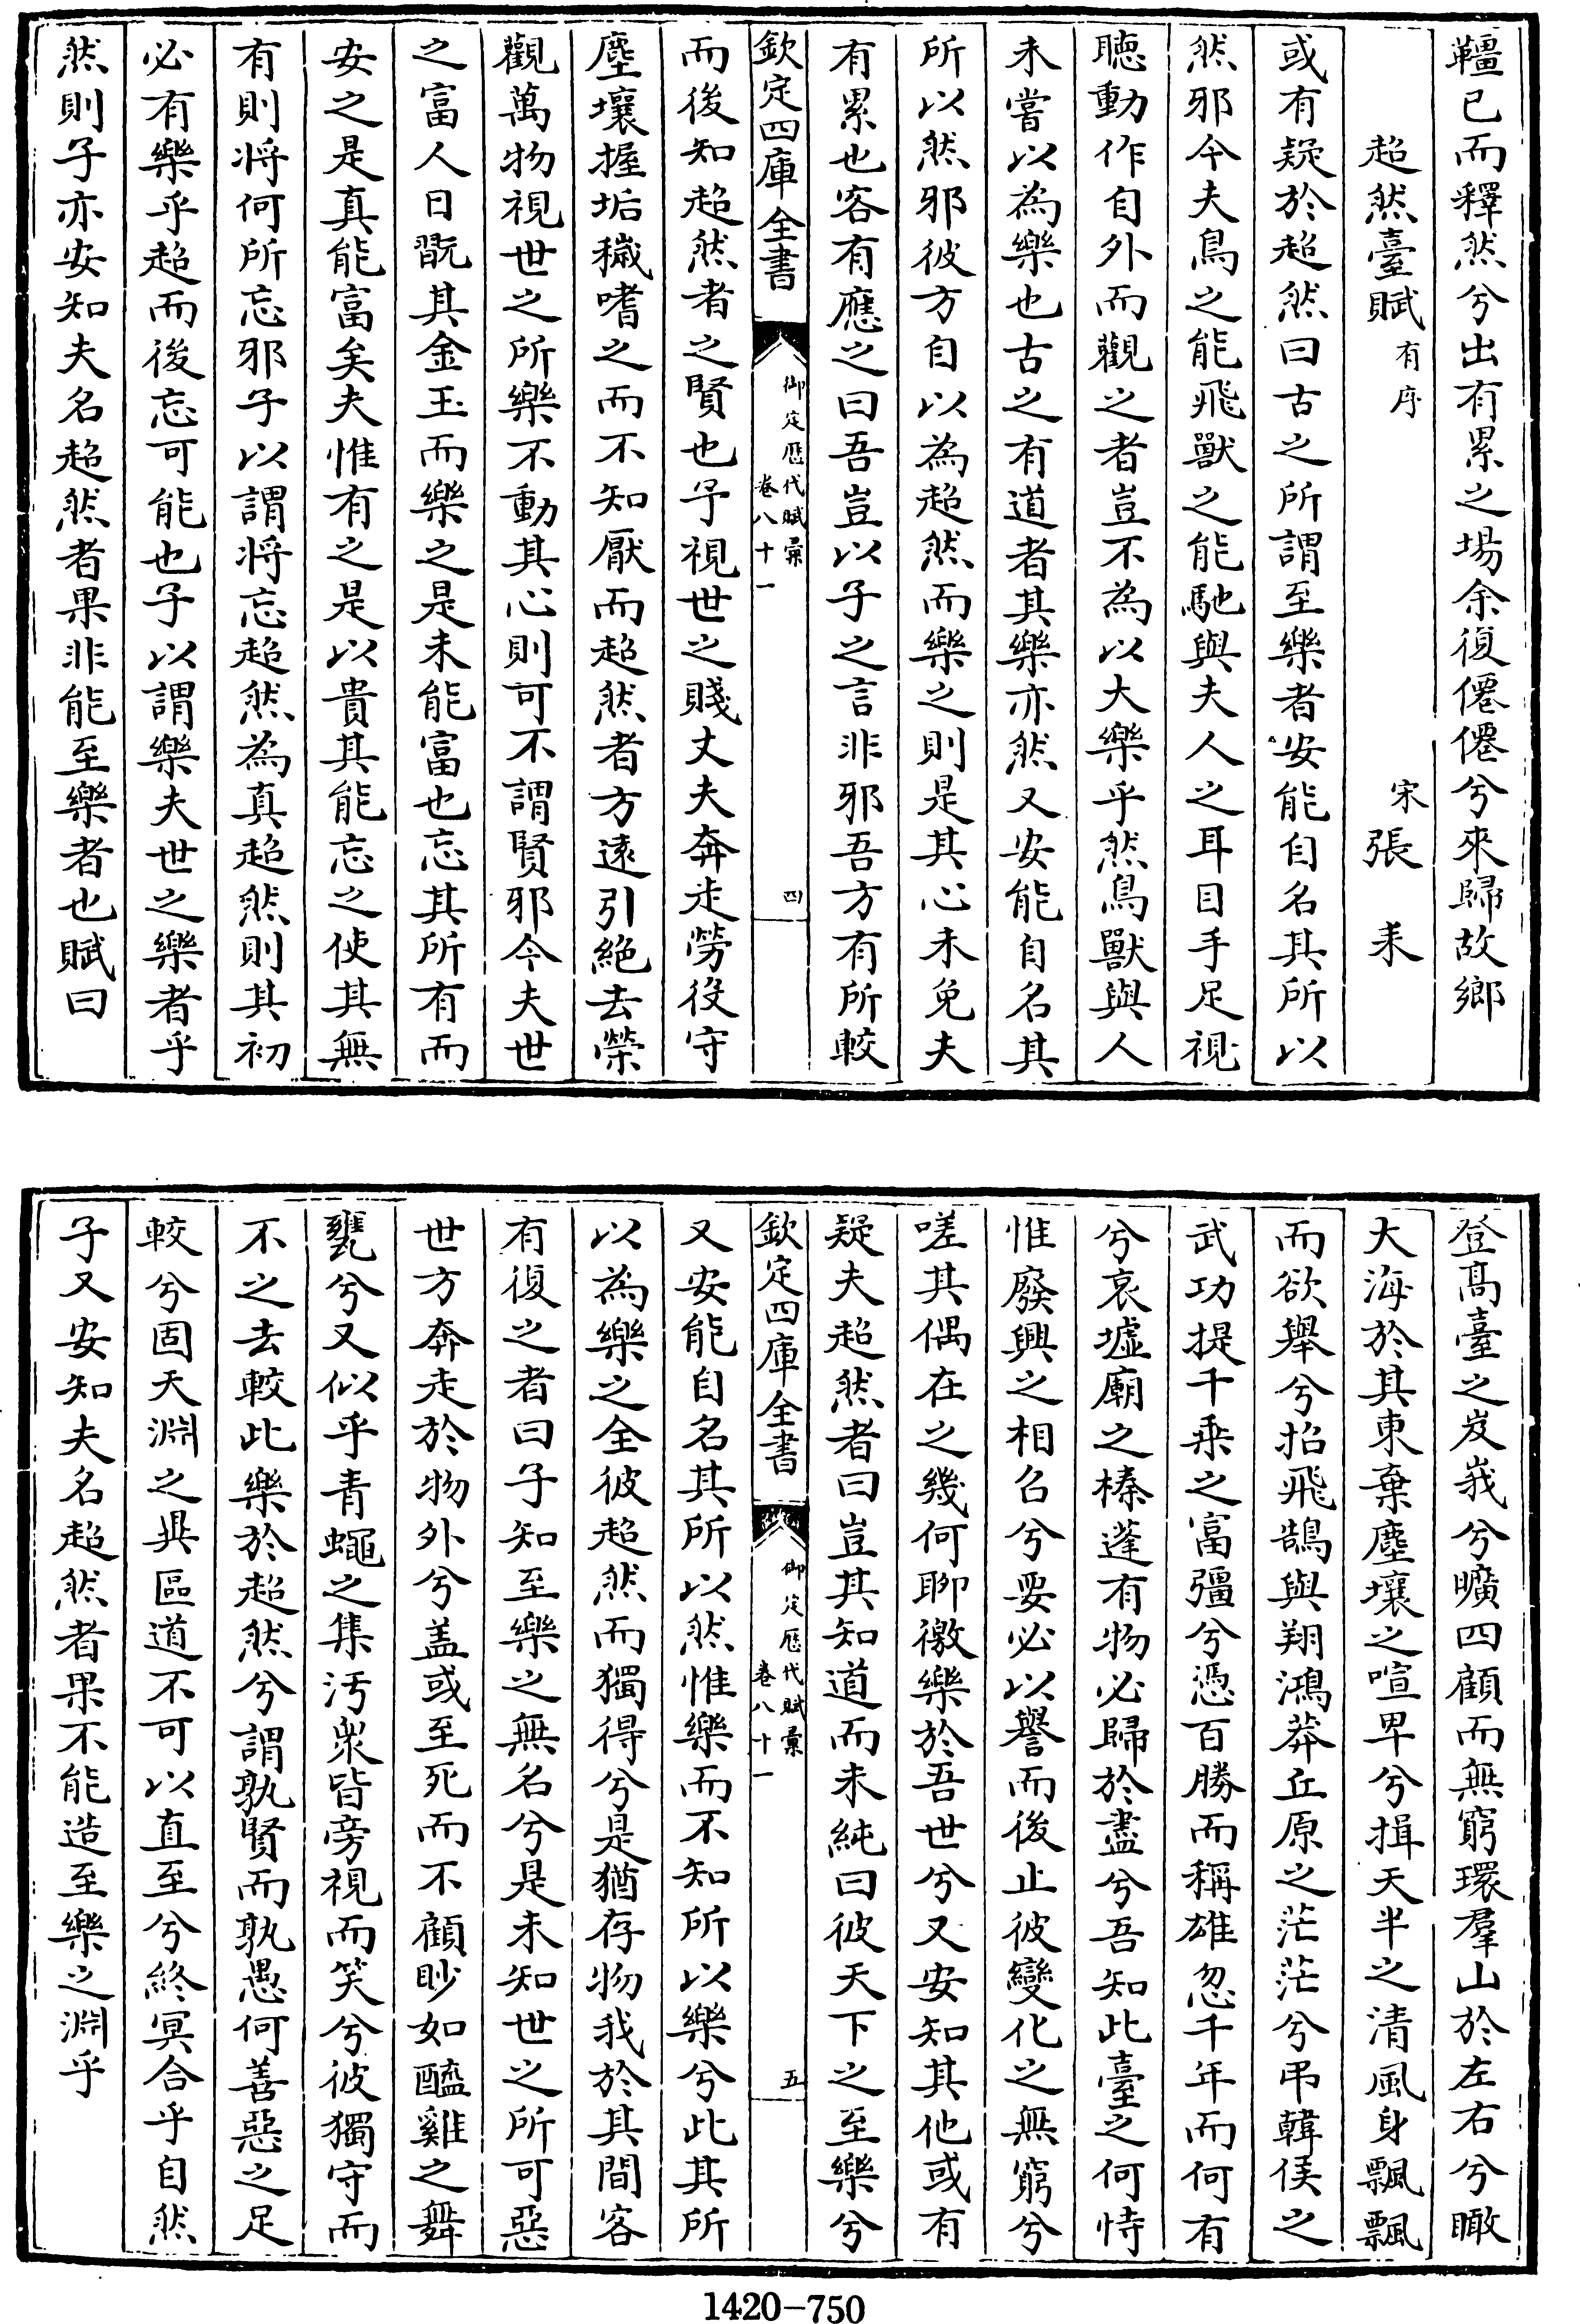 韁已而釋然兮出有累之場余復僊僊兮來歸故鄉
超然臺賦有序 宋張耒
或有疑於超然曰古之所謂至樂者安能自名其所以
然邪今夫鳥之能飛獸之能馳與夫人之耳目手足視
聽動作自外而觀之者豈不為以大樂乎然鳥獸與人
未嘗以為樂也古之有道者其樂亦然又安能自名其
所以然邪彼方自以為超然而樂之則是其心未免夫
有累也客有應之曰吾豈以子之言非邪吾方有所較
欽定四庫全書 御定歷代賦彙 卷八十一 四
而後知超然者之賢也予視世之賤丈夫奔走勞役守
塵壤握垢穢嗜之而不知厭而超然者方遠引絕去榮
觀萬物視世之所樂不動其心則可不謂賢邪今夫世
之富人日翫其金玉而樂之是未能富也忘其所有而
安之是真能富矣夫惟有之是以貴其能忘之使其無
有則將何所忘邪子以謂將忘超然為真超然則其初
必有樂乎超而後忘可能也子以謂樂夫世之樂者乎
然則子亦安知夫名超然者果非能至樂者也賦曰
登高臺之岌峩兮曠四顧而無窮環羣山於左右兮瞰
大海於其東棄塵壤之喧卑兮揖天半之清風身飄飄
而欲舉兮招飛鵠與翔鴻莽丘原之茫茫兮弔韓侯之
武功提千乘之富彊兮憑百勝而稱雄忽千年而何有
兮哀墟廟之榛蓬有物必歸於盡兮吾知此臺之何恃
惟廢興之相召兮要必以譽而後止彼變化之無窮兮
嗟其偶在之幾何聊徼樂於吾世兮又安知其他或有
疑夫超然者曰豈其知道而未純曰彼天下之至樂兮
欽定四庫全書 御定歷代賦彙 卷八十一 五
又安能自名其所以然惟樂而不知所以樂兮此其所
以為樂之全彼超然而獨得兮是猶存物我於其間客
有復之者曰予知至樂之無名兮是未知世之所可惡
世方奔走於物外兮盖或至死而不顧眇如醯雞之舞
甕兮又似乎青蠅之集汚衆皆旁視而笑兮彼獨守而
不之去較此樂於超然兮謂孰賢而孰愚何善惡之足
較兮固天淵之異區道不可以直至兮終冥合乎自然
子又安知夫名超然者果不能造至樂之淵乎
1420-750